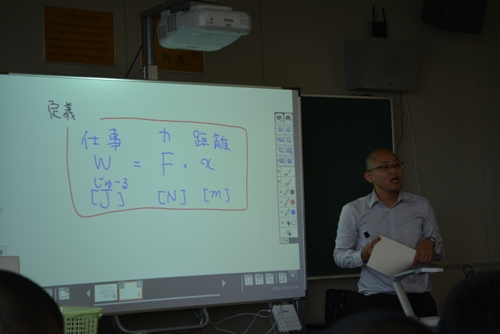 定義
仕事 力 距離
W = F・x
じゅーる
[J] [N] [m]